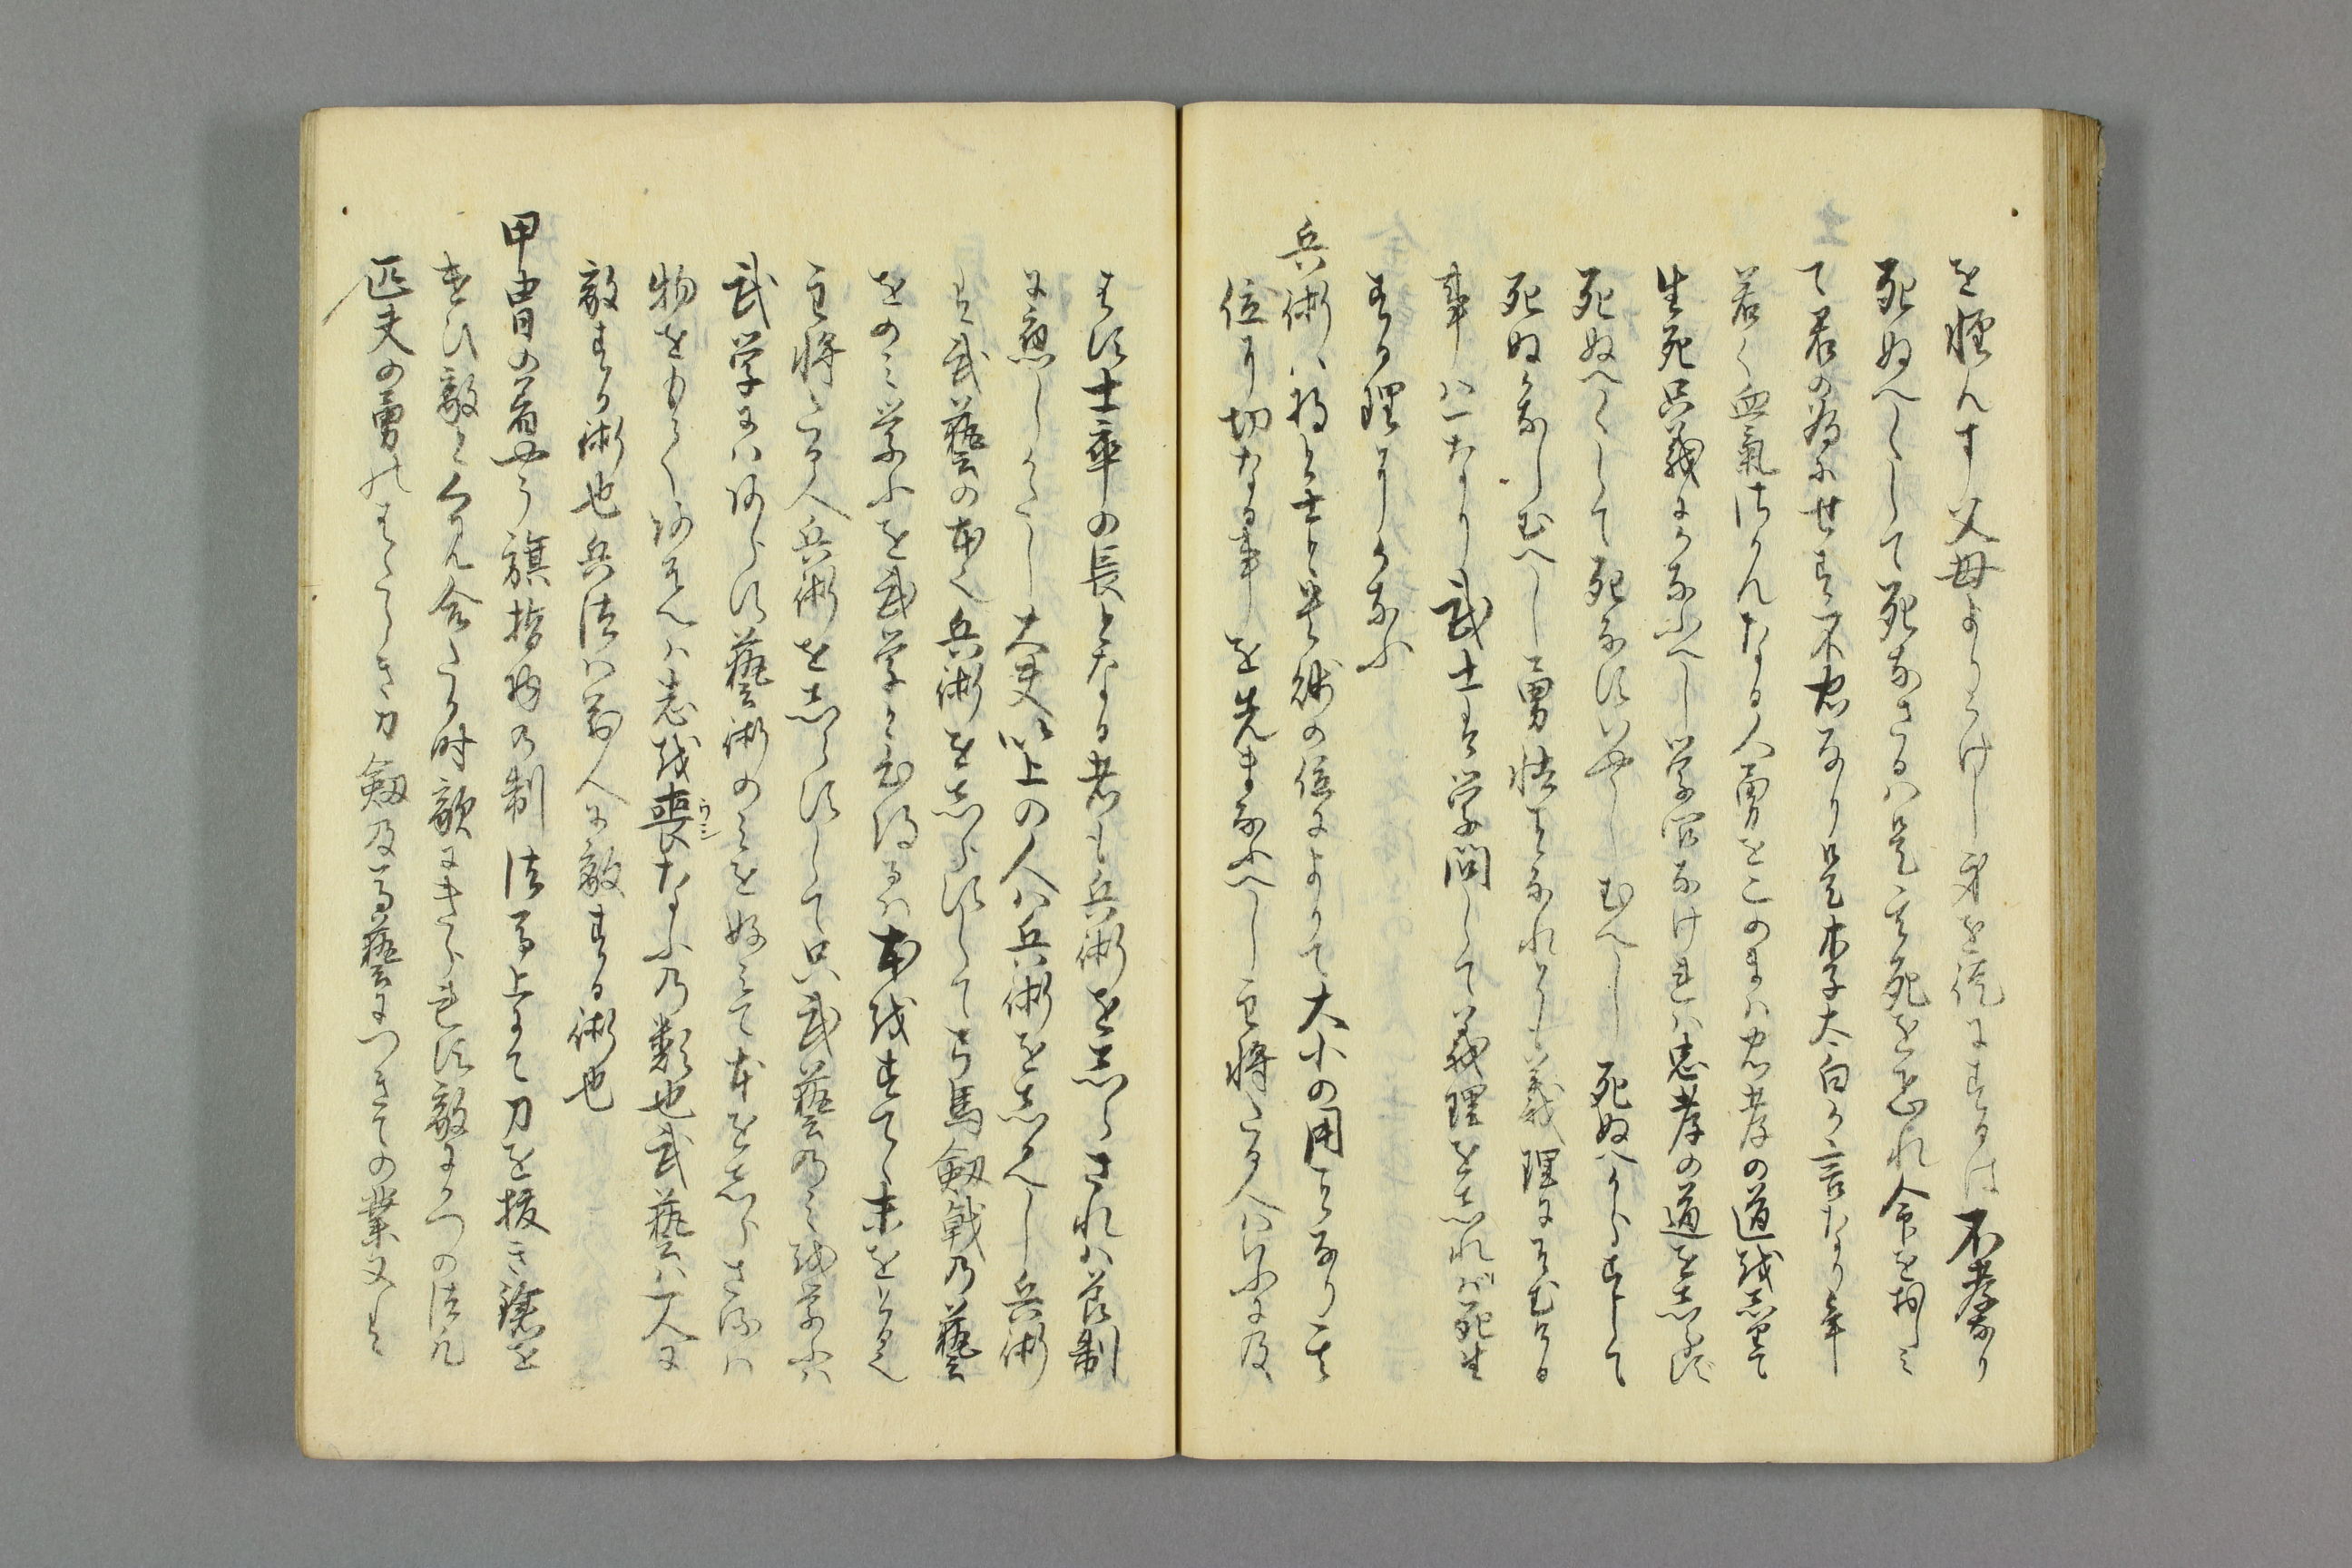 を軽んす父母よりうけし身を徒にするは不孝なり
死ぬへくして死なさるは是亦死を恐れ命を惜み
て君の為にせす不忠なり是李太白か言なり年
若く血氣さかんなる人勇をこのまは忠孝の道を忘て
生死只義にかなふへし学問なけれは忠孝の道を志らず
死ぬへくして死なすいやしむへし死ぬへからすして
死ぬかなしむへし勇怯ことなれとも義理にそむける
事は一なり武士は学問して義理を志れば死生
する理にかなふ
兵術は将と士と其術の位によりて大小の用ことなり其
位に切なる事を先まなふへし主将たる人は云に及
はす士卒の長となる者も兵術を志らされは節制
に應しかたし大夫以上の人は兵術を志るへし兵術
は武藝の本也兵術を志らすして弓馬劔戟の藝
をのみ学ふを武学と心得るは本をすてゝ末をとる也
主将たる人兵術を志らすして只武藝のみを学ふは
武学にはあらす藝術のみを好みて本を志らされは
物をもてあそへは志を喪なふの類也武藝は一人に
敵する術也兵法は萬人に敵する術也
甲冑の着やう旗指物の制法馬上にて刀を抜き鎗を
つかひ敵とくみ合たる時敵にきられす敵にかつの法凡
匹夫の勇のはたらき刀劔及馬藝につきての業又は